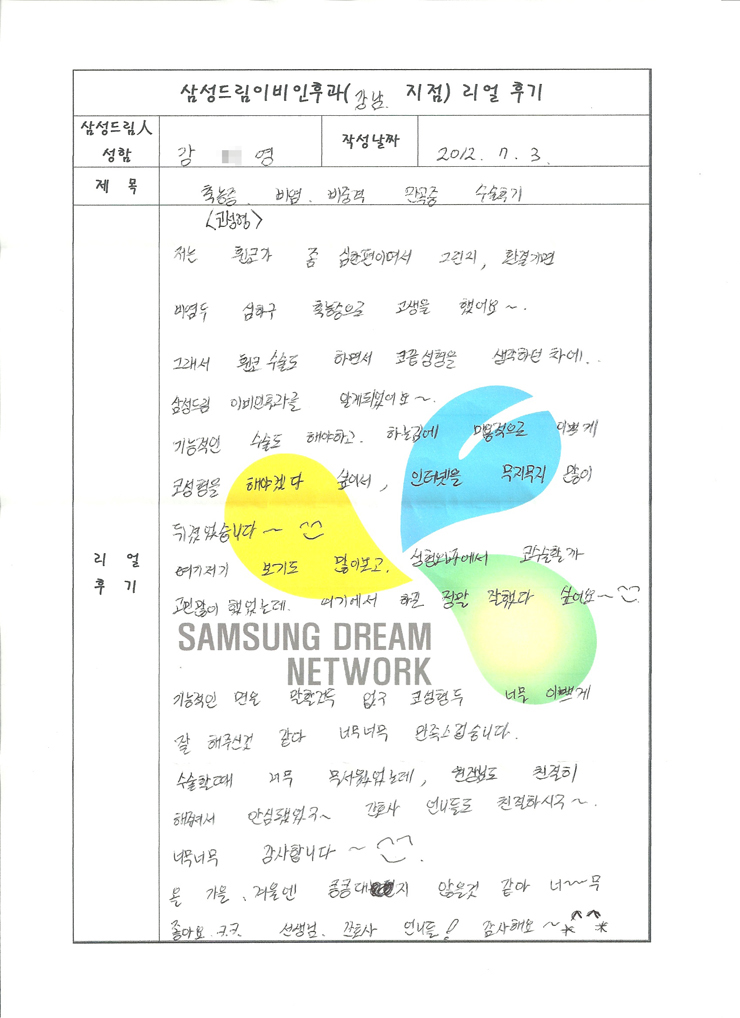 삼성드림이비인후과(강남. 지점) 리얼 후기
삼성드림人 성함
강 영
작성날짜
2012. 7. 3.
제 목
축농증. 비염. 비중격 만곡증 수술후기
<코성형>
리 얼 후 기
저는 휜코가 좀 심한편이여서 그런지, 환절기면
비염두 심하구 축농증으로 고생을 했어요~.
그래서 휜코 수술도 하면서 코끝성형을 생각하던 차에..
삼성드림 이비인후과를 알게되었어요~.
기능적인 수술도 해야하고. 하는김에 미용적으로 이쁘게
코성형을 해야겠다 싶어서, 인터넷을 무지무지 많이
뒤졌었습니다~
여기저기 보기도 많이보고. 성형외과에서 코수술할까
고민많이 했었는데. 여기에서 하고 정말 잘했다 싶어요~
SAMSUNG DREAM
NETWORK
기능적인 면은 말할것두 없구 코성형두 너무 이쁘게
잘 해주신것 같다 너무너무 만족스럽습니다.
수술할때 너무 무서웠었는데, 원장님도 친절히
해주셔서 안심됐었구~ 간호사 언니들도 친절하시구~.
너무너무 감사합니다~
올 가을, 겨울엔 킁킁대지 않을것 같아 너~~무
좋아요.ㅋㅋ 선생님. 간호사 언니들! 감사해요~*^^*